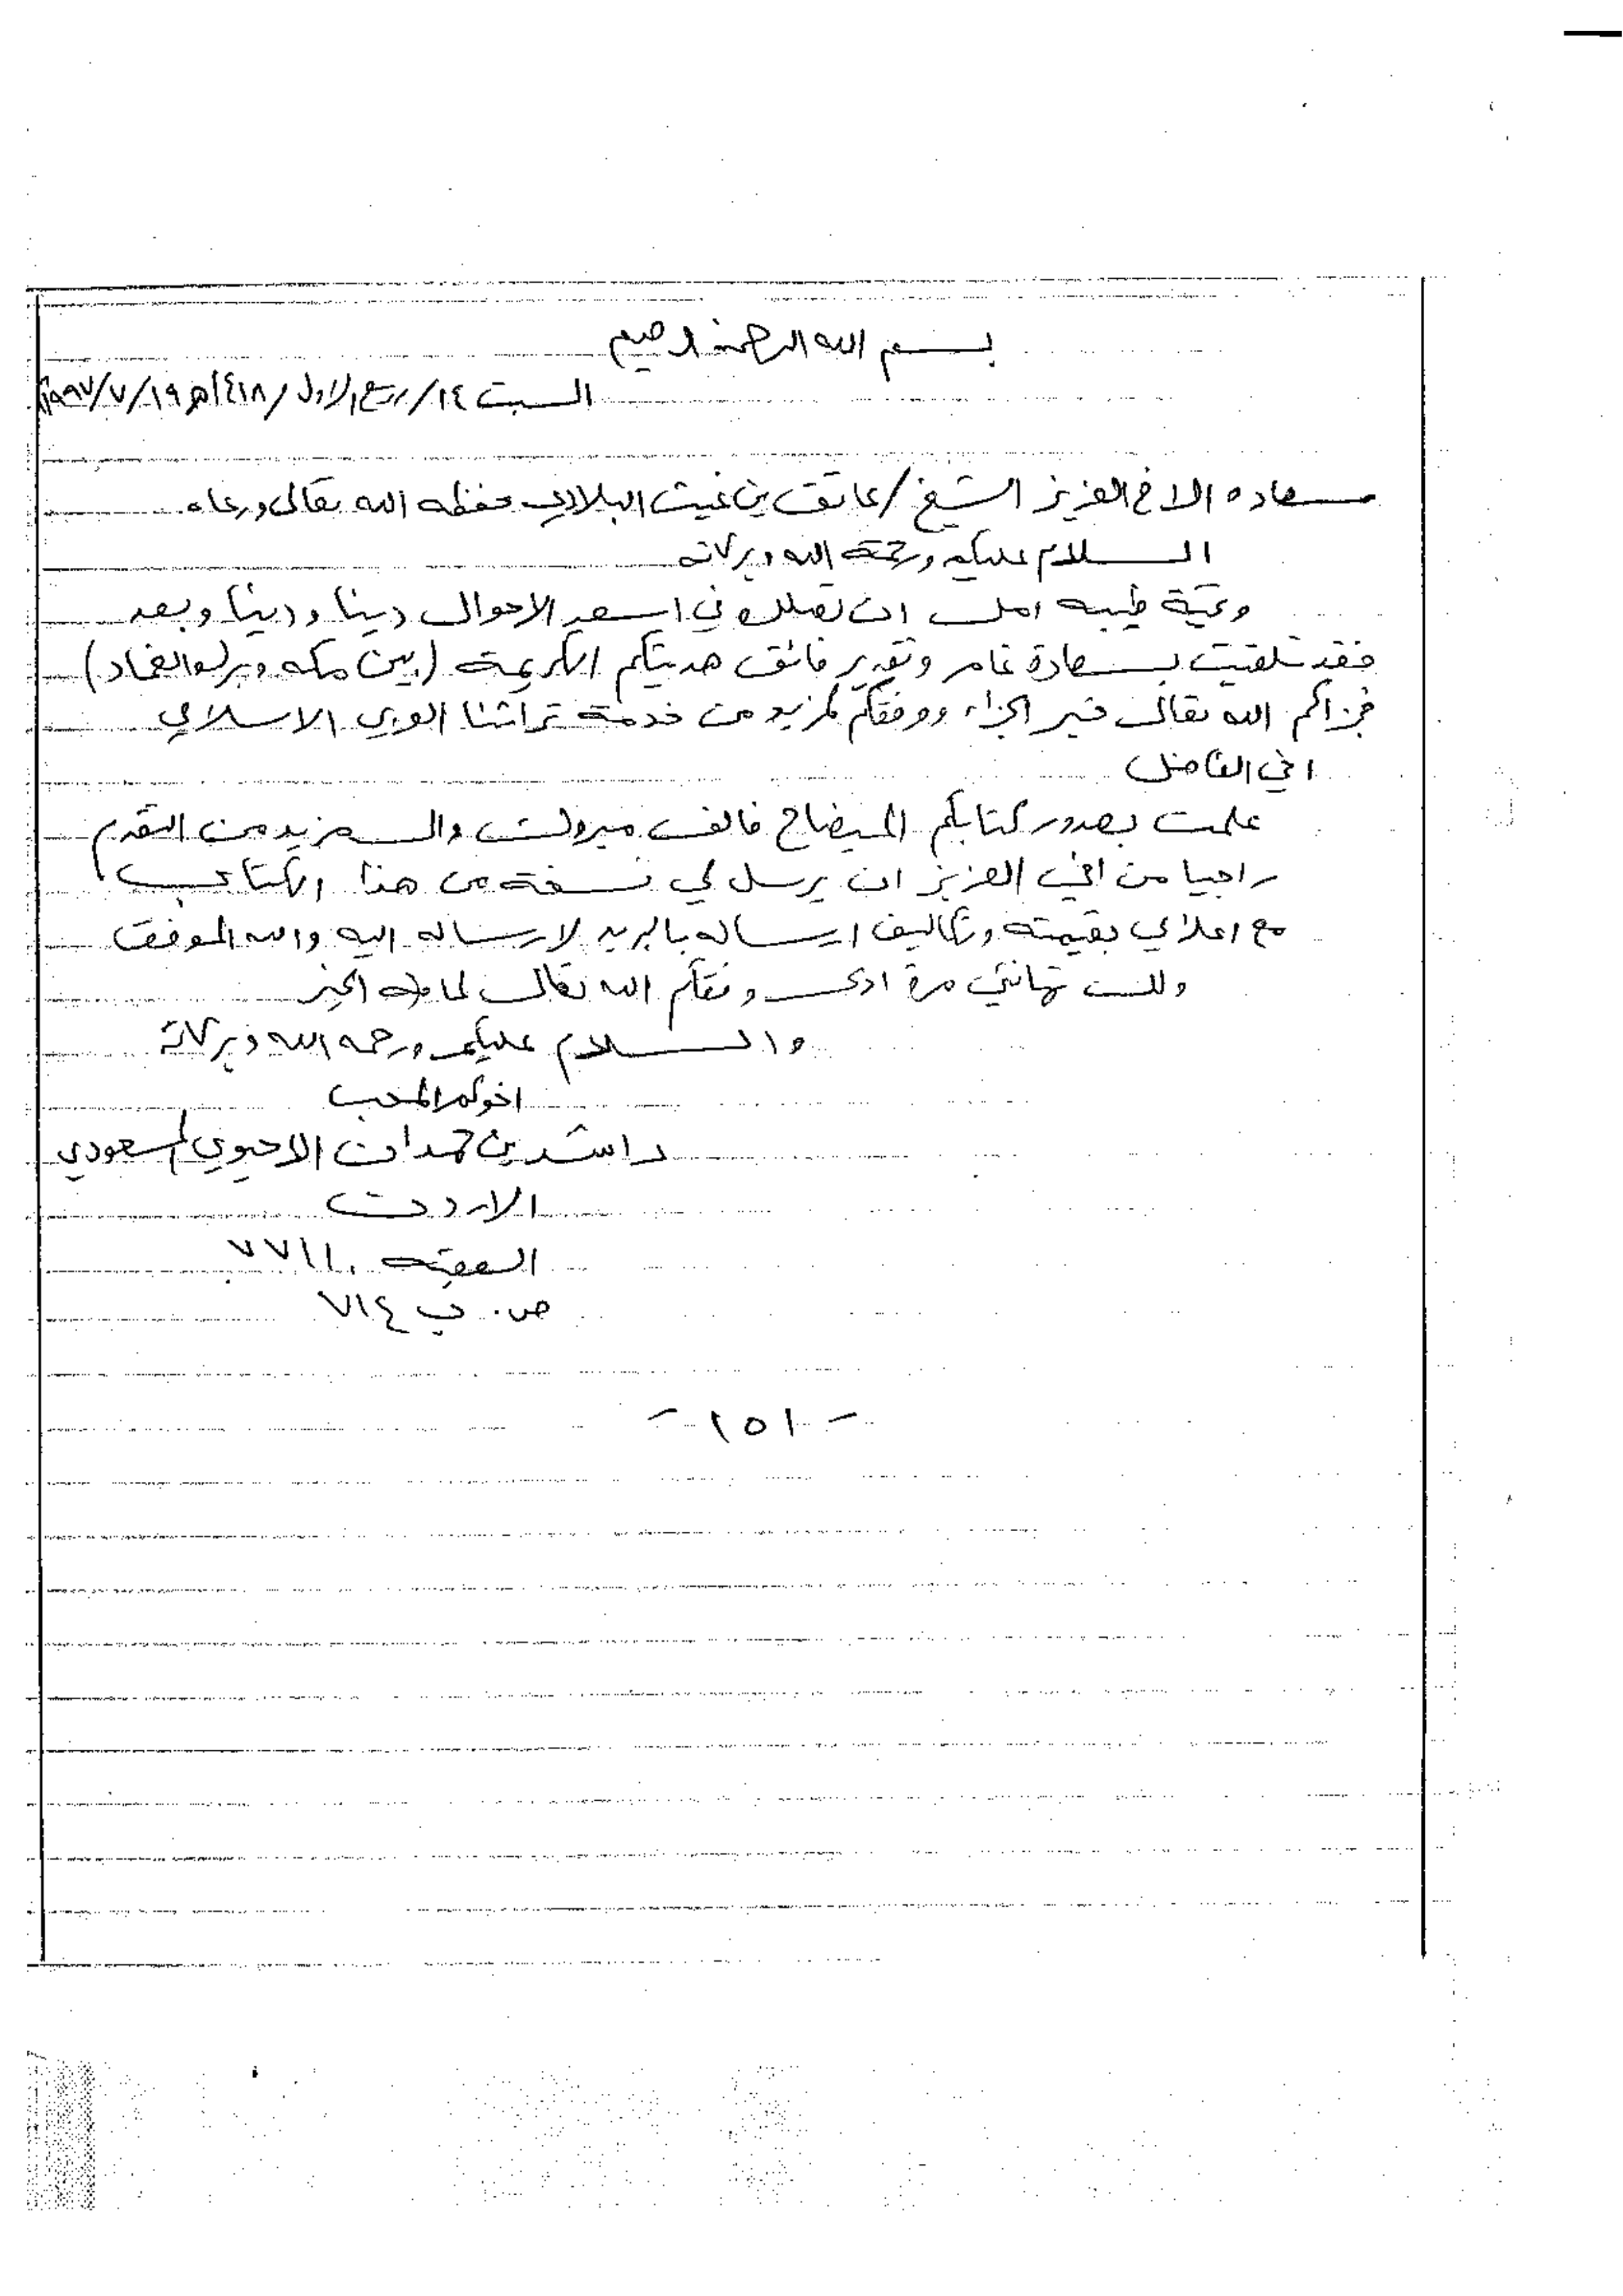 بسم الله الرحمن الرحيم
السبت ١٤/ربيع الاول/١٤١٨هـ ١٩/٧/١٩٩٧م
سعاده الاخ العزيز الشيخ/عاتق بن غيث البلادي حفظه الله تعالى ورعاه
السلام عليكم ورحمة الله وبركاته
وتحية طيبه امل ان تصلك وفي اسعد الاحوال دينا ودينا وبعد
فقد تلقيت بسعادة غامر وتقدير فائق هديتكم الكريمة (بين مكه وبرك الغماد)
فجزاكم الله تعالى خير الجزاء ووفقكم لمزيد من خدمة تراثنا العربي الاسلامي
اخي الفاضل
علمت بصدور كتابكم الميضاح فالف مبروك والمزيد من التقدم
راجيا من اخي العزيز ان يرسل لي نسخة من هذا الكتاب
مع اعلامي بقيمته وتكاليف ارساله بالبريد لارساله اليه والله الموفق
ولك تهانئي مرة اخرى وفقكم الله تعالى لما فيه الخير
والسلام عليكم ورحمه الله وبركاته
اخوكم المحب
راشد بن حمدان الاحيوي المسعودي
الاردن
العقبة ٧٧١١٠
ص. ب ٧١٤
- ١٥١ -